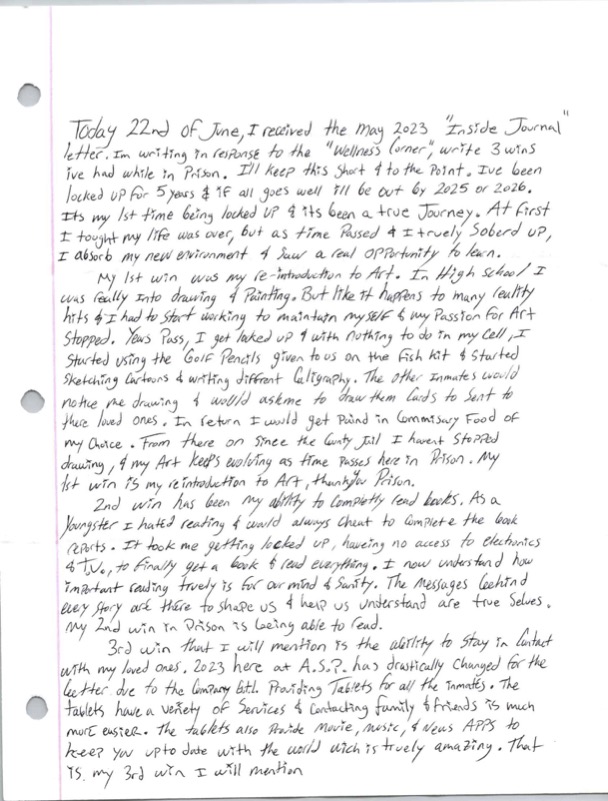 Today 22nd of June, I received the May 2023 "Inside Journal"
letter. Im writing in response to the "Wellness Corner", write 3 wins
ive had while in Prison. I'll keep this short & to the Point. I've been
locked up for 5 years & if all goes well ill be out by 2025 or 2026.
Its my 1st time being locked up & its been a true Journey. At first
I tought my life was over, but as time Passed & I truely Soberd up,
I absorb my new environment & saw a real opportunity to learn.
My 1st win was my re-introduction to Art. In High school I
was really Into drawing & Painting. But like it happens to many reality
hits & I had to start working to maintain myself & my Passion for Art
Stopped. Years Pass, I get locked up & with nothing to do in my cell, I
started using the Golf Pencils given to us on the fish kit & started
sketching Cartoons & writing diffrent Caligraphy. The other Inmates would
notice me drawing & would ask me to draw them Cards to Sent to
there loved ones. In return I would get Paind in Commisary Food of
my Choice. From there on since the County Jail I havent Stopped
drawing, & my Art keeps evolving as time Passes here in Prison. My
1st win is my reintroduction to Art, thankyou Prison.
2nd win has been my ability to Completly read books. As a
Youngster I hated reading & would always Cheat to Complete the book
reports. It took me getting locked up, haveing no access to electronics
& T.V., to finally get a book & read everything. I now understand how
important reading truely is for our mind & Sanity. The Messages behind
every Story are there to shape us & help us understand are true Selves.
My 2nd win in Prison is being able to read.
3rd win that I will mention is the ability to stay in Contact
with my loved ones. 2023 here at A.S.P. has drastically changed for the
better due to the Company Gtl. Providing Tablets for all the inmates. The
tablets have a veriety of Services & Contacting family & friends is much
more easier. The tablets also Provide Movie, Music, & News APPS to
keep You upto date with the world wich is truely amazing. That
is my 3rd win I will mention